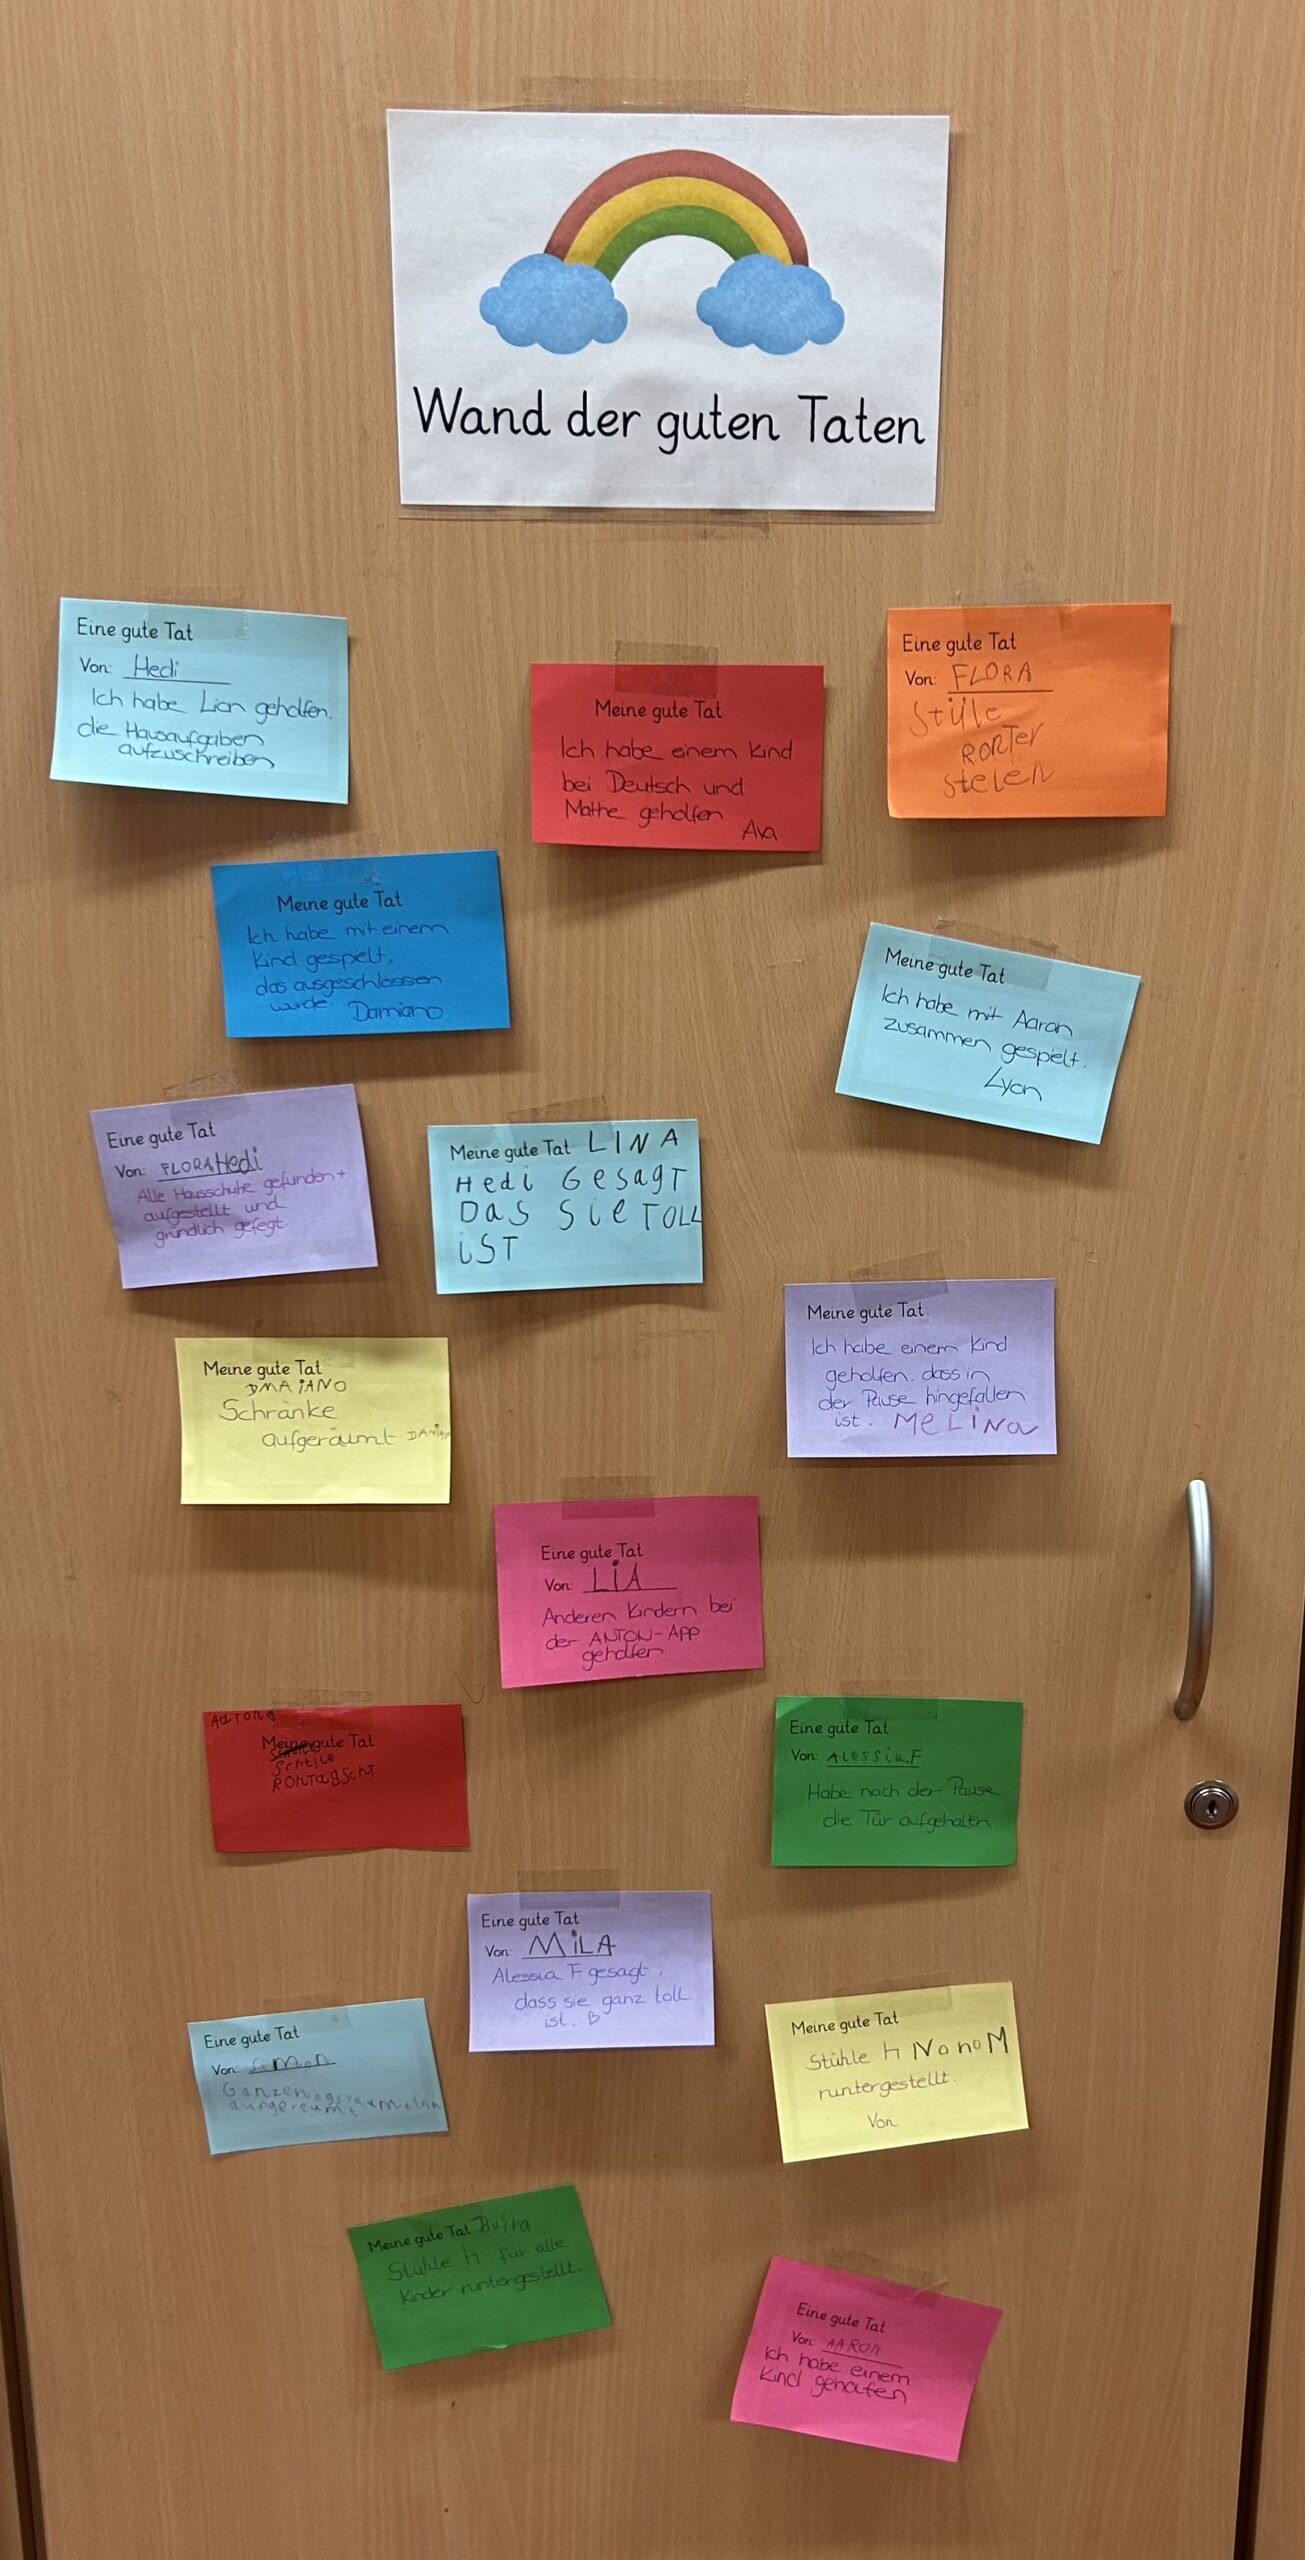 Wand der guten Taten
Eine gute Tat
Von: Hedi
Ich habe Lian geholfen.
die Hausaufgaben
aufzuschreiben
Meine gute Tat
Ich habe einem Kind
bei Deutsch und
Mathe geholfen
Ava
Eine gute Tat
Von: FLORA
Stüle
RONTer
Stelen
Meine gute Tat
Ich habe mit einem
Kind gespielt,
das ausgeschlossen
wurde. Damiano
Meine gute Tat
Ich habe mit Aaron
zusammen gespielt.
Lyon
Eine gute Tat
Von: FLORA Hedi
Alle Hausschuhe gefunden +
aufgestellt und
gründlich gefegt.
Meine gute Tat LINA
Hedi Gesagt
Das Sie TOLL
iST
Meine gute Tat
Ich habe einem Kind
geholfen, dass in
der Pause hingefallen
ist. MeLiNa
Meine gute Tat
DMAiANO
Schränke
aufgeräumt
Eine gute Tat
Von: LiA
Anderen Kindern bei
der ANTON-App
geholfen
Aaron
Meine gute Tat
Eine gute Tat
Von: Alessia.F
Habe nach der Pause
die Tür aufgehalten.
Eine gute Tat
Von: MiLA
Alessia F. gesagt,
dass sie ganz toll
ist.
Eine gute Tat
Von:
Ganzen
aufgereumt
Meine gute Tat
Stühle
runtergestellt.
Von
Meine gute Tat
Stühle für alle
Kinder runtergestellt.
Eine gute Tat
Von: AARON
Ich habe einem
Kind geholfen